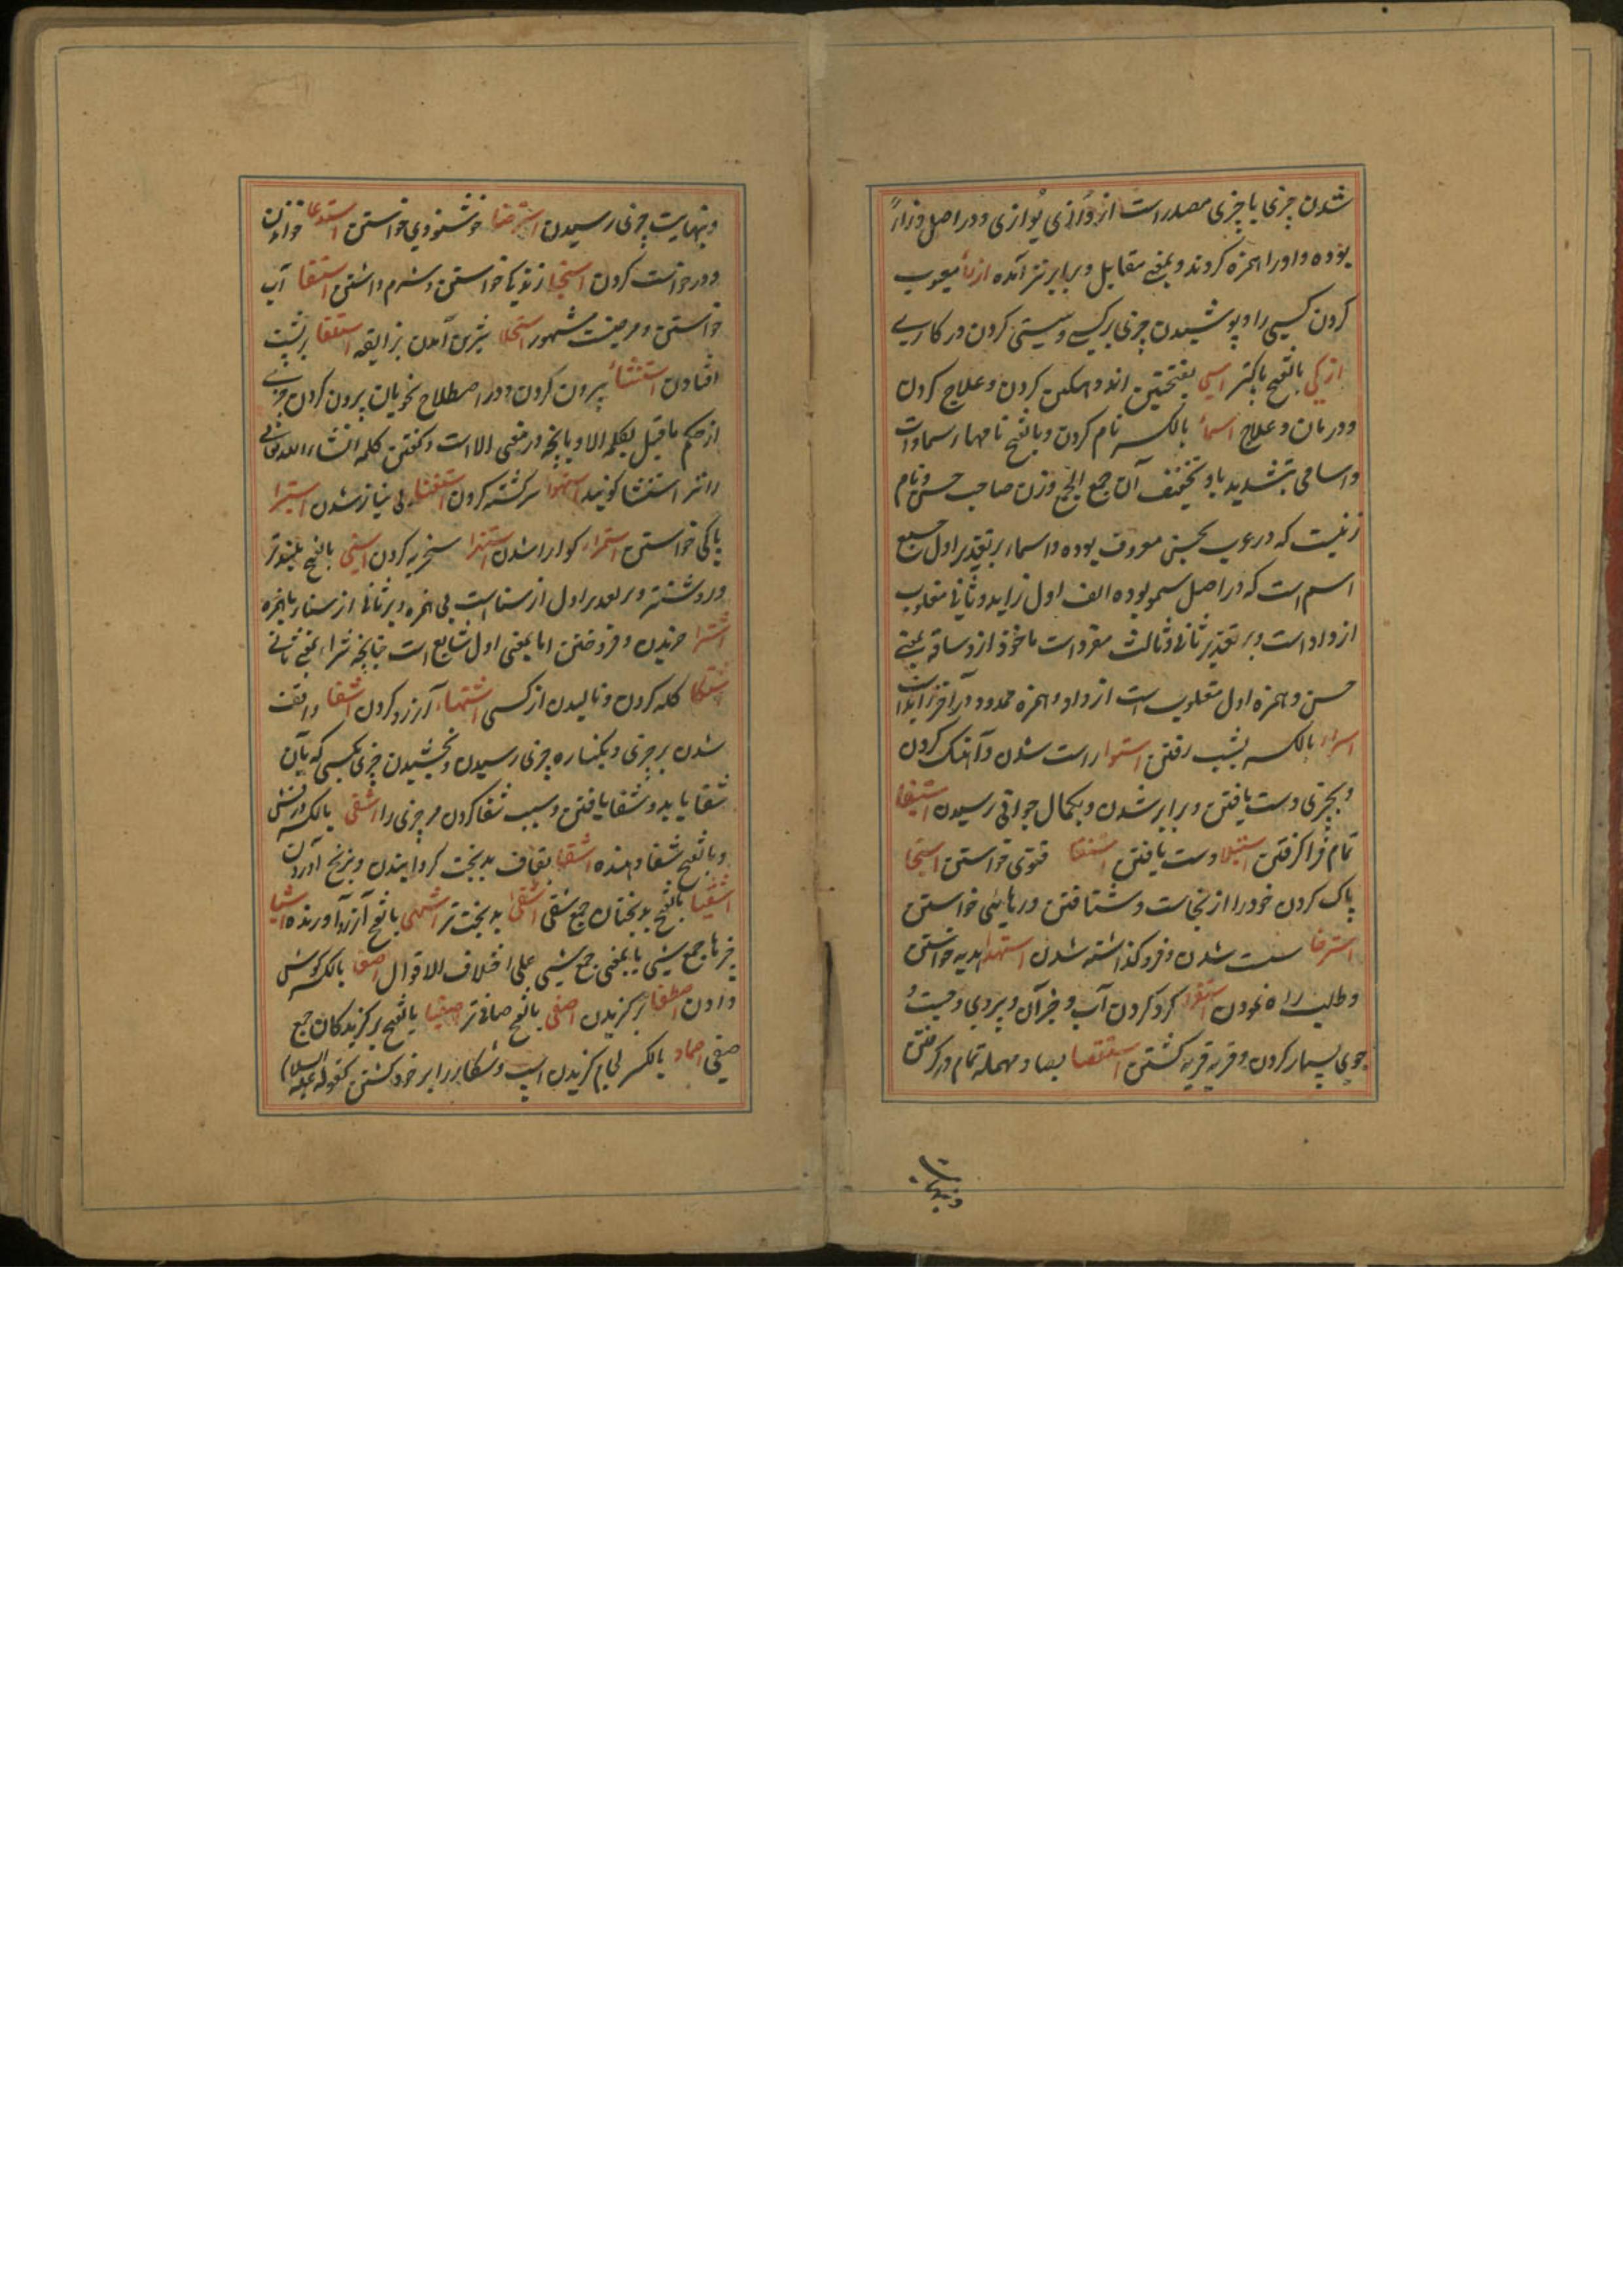 شدن چیزی با چیزی مصدر است از وازی یوازی و در اصل وزاء
بوده واو را همزه کردند و بمعنی مقابل و برابر نیز آمده ازراء معیوب
کردن کسی را و پوشیدن چیزی بر کسی و سستی کردن در کاری
ازکی بالفتح پاکتر اسی بفتحتین اندوهگین کردن و علاج کردن
و درمان و علاج اسماء بالکسر نام کردن و بالفتح نامها و سماوات
واسامی بتشدید یا و تخفیف آن جمع الجمع وزن صاحب حسن و نام
زنیست که در عرب بحسن معروف بوده و اسماء بر تقدیر اول جمع
اسم است که در اصل سمو بوده الف اول زاید و ثانی مقلوب
از واو است و بر تقدیر ثانی و ثالث مفرد است ماخوذ از وسامة بمعنی
حسن و همزه اول مقلوب است از واو و همزه ممدوده در آخر زاید است
اسراء بالکسر بشب رفتن استوا راست شدن و آهنگ کردن
و بچیزی دست یافتن و برابر شدن و بکمال جوانی رسیدن استیفا
تمام فرا گرفتن استیلا دست یافتن استفتا فتوی خواستن استنجا
پاک کردن خود را از نجاست و شتافتن و رهایی خواستن
استرخا سست شدن و فرو گذاشته شدن استهدا هدیه خواستن
و طلب راه نمودن استقرا گرد کردن آب و جز آن و پیروی و جست و
جوی بسیار کردن و قریه قریه گشتن استقصا بصاد مهمله تمام در گرفتن
و بنهایت
و بنهایت چیزی رسیدن استرضا خوشنودی خواستن استدعا خواندن
و درخواست کردن استحیا زندیکا خواستن و شرم داشتن استسقا آب
خواستن و مرضیست مشهور استحلا شیرین آمدن بذایقه استلقا بر پشت
افتادن استثناء بیرون کردن و در اصطلاح نحویان بیرون کردن چیزی
از حکم ماقبل بکلمه الا و یا آنچه در معنی الا است و گفتن کلمه انشاء الله تعالی
را نیز استثنا گویند استهوا سرگشته کردن استغنا بی نیاز شدن استبرا
پاکی خواستن استمراء گوارا شدن استهزا سخریه کردن اسنی بالفتح بلندتر
و روشنتر و بر تقدیر اول از سنا است بی همزه و بر ثانی از سناء با همزه
اشترا خریدن و فروختن اما بمعنی اول شایع است چنانچه شراء بمعنی ثانی
اشتکا گله کردن و نالیدن از کسی اشتهاء آرزو کردن اشفا واقف
شدن بر چیزی و بکناره چیزی رسیدن و بخشیدن چیزی بکسی که بآن
شفا یابد و شفا یافتن و سبب شفا کردن مر چیزی را اشفی بالکسر درفش
و بالفتح شفا دهنده اشقا بقاف بدبخت گردانیدن و برنج آوردن
اشقیا بالفتح بدبختان جمع شقی اشقی بدبخت تر اشهی بالفتح آرزو آورنده اشیا
چیزها جمع شیء یا بمعنی جمع شیء علی اختلاف الاقوال اصغا بالکسر گوش
دادن اصطفا برگزیدن اصفی بالفتح صافی تر اصفیا بالفتح برگزیدگان جمع
صفی اصماء بالکسر لجام گزیدن اسب و شکار را بر خود کشتن کقوله علیه السلام